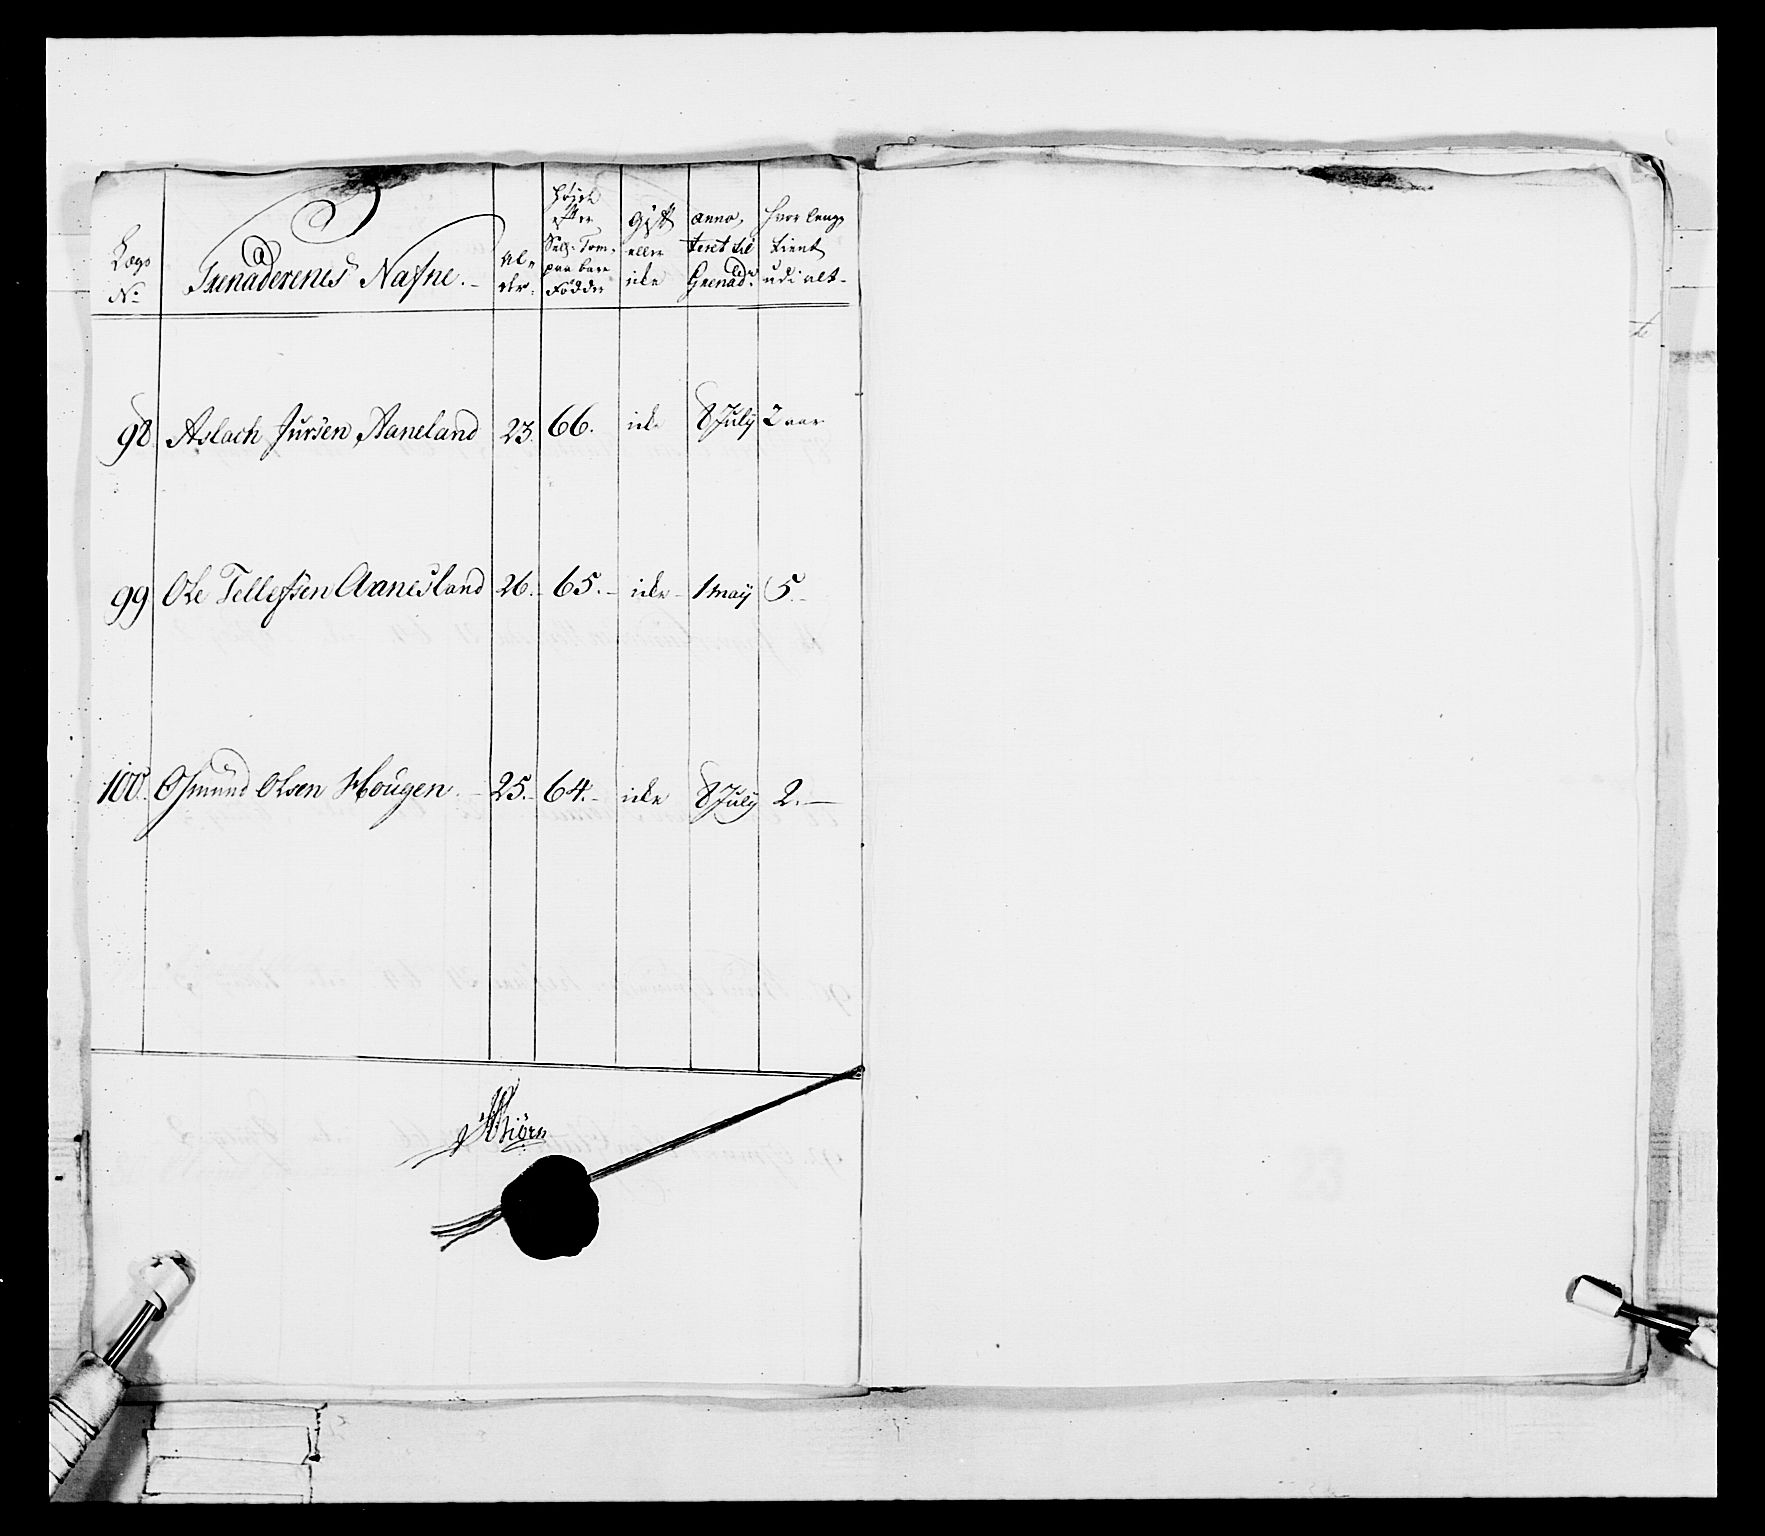 Lægs No Grenaderenes Nafne. Al- der. Høyde efter Sæl: Tom. paa bare Fødder Gift eller icke anno- teret til Grenadr. hvor længe tient udi alt.
98 Aslach Jursen Aaneland 23. 66. icke 8 July 2 aar
99 Ole Tellefsen Aanesland 26. 65. icke 1 may 5.
100. Osmund Olsen Hougen. 25. 64. icke 8 July 2.